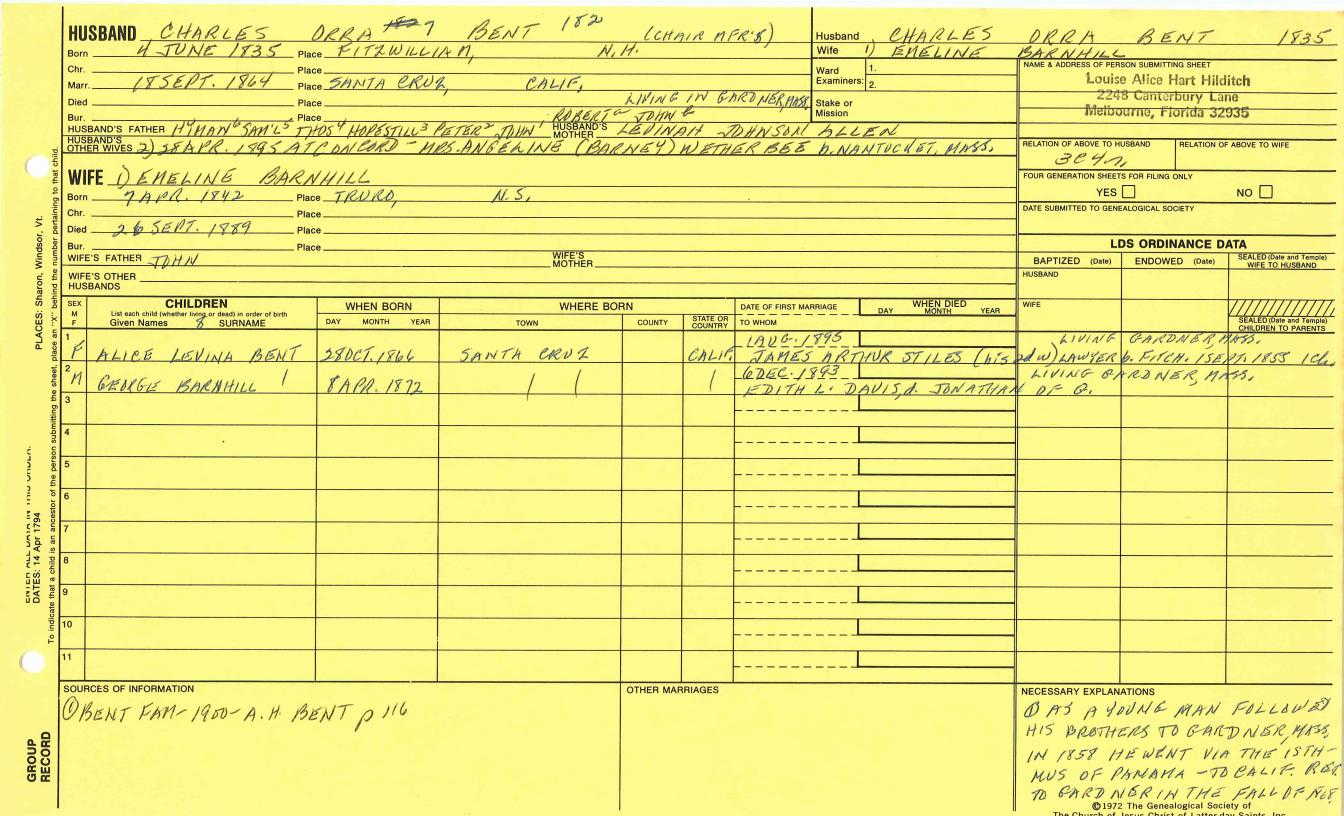 HUSBAND CHARLES ORRA 7 BENT 182 (CHAIR MFR'S)
Born 4 JUNE 1835 Place FITZWILLIAM, N.H.
Chr. Place
Marr. 18 SEPT. 1864 Place SANTA CRUZ, CALIF.
Died Place LIVING IN GARDNER, MASS.
Bur. Place ROBERT a JOHN b
HUSBAND'S FATHER HYMAN 6 SAM'L 5 THOS 4 HOPESTILL 3 PETER 2 JOHN 1 HUSBAND'S MOTHER LEVINAH JOHNSON ALLEN
HUSBAND'S OTHER WIVES 2) 28 APR. 1895 AT CONCORD - MRS. ANGELINE (BARNEY) WETHERBEE b. NANTUCKET, MASS.
WIFE 1) EMELINE BARNHILL
Born 7 APR. 1842 Place TRURO, N.S.
Chr. Place
Died 26 SEPT. 1889 Place
Bur. Place
WIFE'S FATHER JOHN WIFE'S MOTHER
WIFE'S OTHER HUSBANDS
Husband CHARLES ORRA BENT 1835
Wife 1) EMELINE BARNHILL
Ward Examiners: 1. 2.
Stake or Mission
NAME & ADDRESS OF PERSON SUBMITTING SHEET
Louise Alice Hart Hilditch
2248 Canterbury Lane
Melbourne, Florida 32935
RELATION OF ABOVE TO HUSBAND RELATION OF ABOVE TO WIFE
3C4r,
FOUR GENERATION SHEETS FOR FILING ONLY
YES NO
DATE SUBMITTED TO GENEALOGICAL SOCIETY
LDS ORDINANCE DATA
BAPTIZED (Date) ENDOWED (Date) SEALED (Date and Temple) WIFE TO HUSBAND
HUSBAND
WIFE
SEALED (Date and Temple) CHILDREN TO PARENTS
SEX M F CHILDREN WHEN BORN WHERE BORN DATE OF FIRST MARRIAGE WHEN DIED
List each child (whether living or dead) in order of birth
Given Names 8 SURNAME DAY MONTH YEAR TOWN COUNTY STATE OR COUNTRY TO WHOM DAY MONTH YEAR
1 1 AUG. 1895 LIVING GARDNER, MASS.
F ALICE LEVINA BENT 28 OCT. 1866 SANTA CRUZ CALIF. JAMES ARTHUR STILES (his 2d w) LAWYER b. FITCH. 1 SEPT. 1855 1 ch.
2 6 DEC. 1893 LIVING GARDNER, MASS.
M GEORGE BARNHILL 8 APR. 1872 EDITH L. DAVIS, d. JONATHAN OF G.
3
4
5
6
7
8
9
10
11
SOURCES OF INFORMATION
① BENT FAM - 1900 - A.H. BENT p 116
OTHER MARRIAGES
NECESSARY EXPLANATIONS
① AS A YOUNG MAN FOLLOWED
HIS BROTHERS TO GARDNER, MASS,
IN 1858 HE WENT VIA THE ISTH-
MUS OF PANAMA - TO CALIF. RET.
TO GARDNER IN THE FALL OF
©1972 The Genealogical Society of
The Church of Jesus Christ of Latter-day Saints, Inc.
PLACES: Sharon, Windsor, Vt.
ENTER ALL DATA IN THIS ORDER:
DATES: 14 Apr 1794
To indicate that a child is an ancestor of the person submitting the sheet, place an "X" behind the number pertaining to that child.
GROUP RECORD